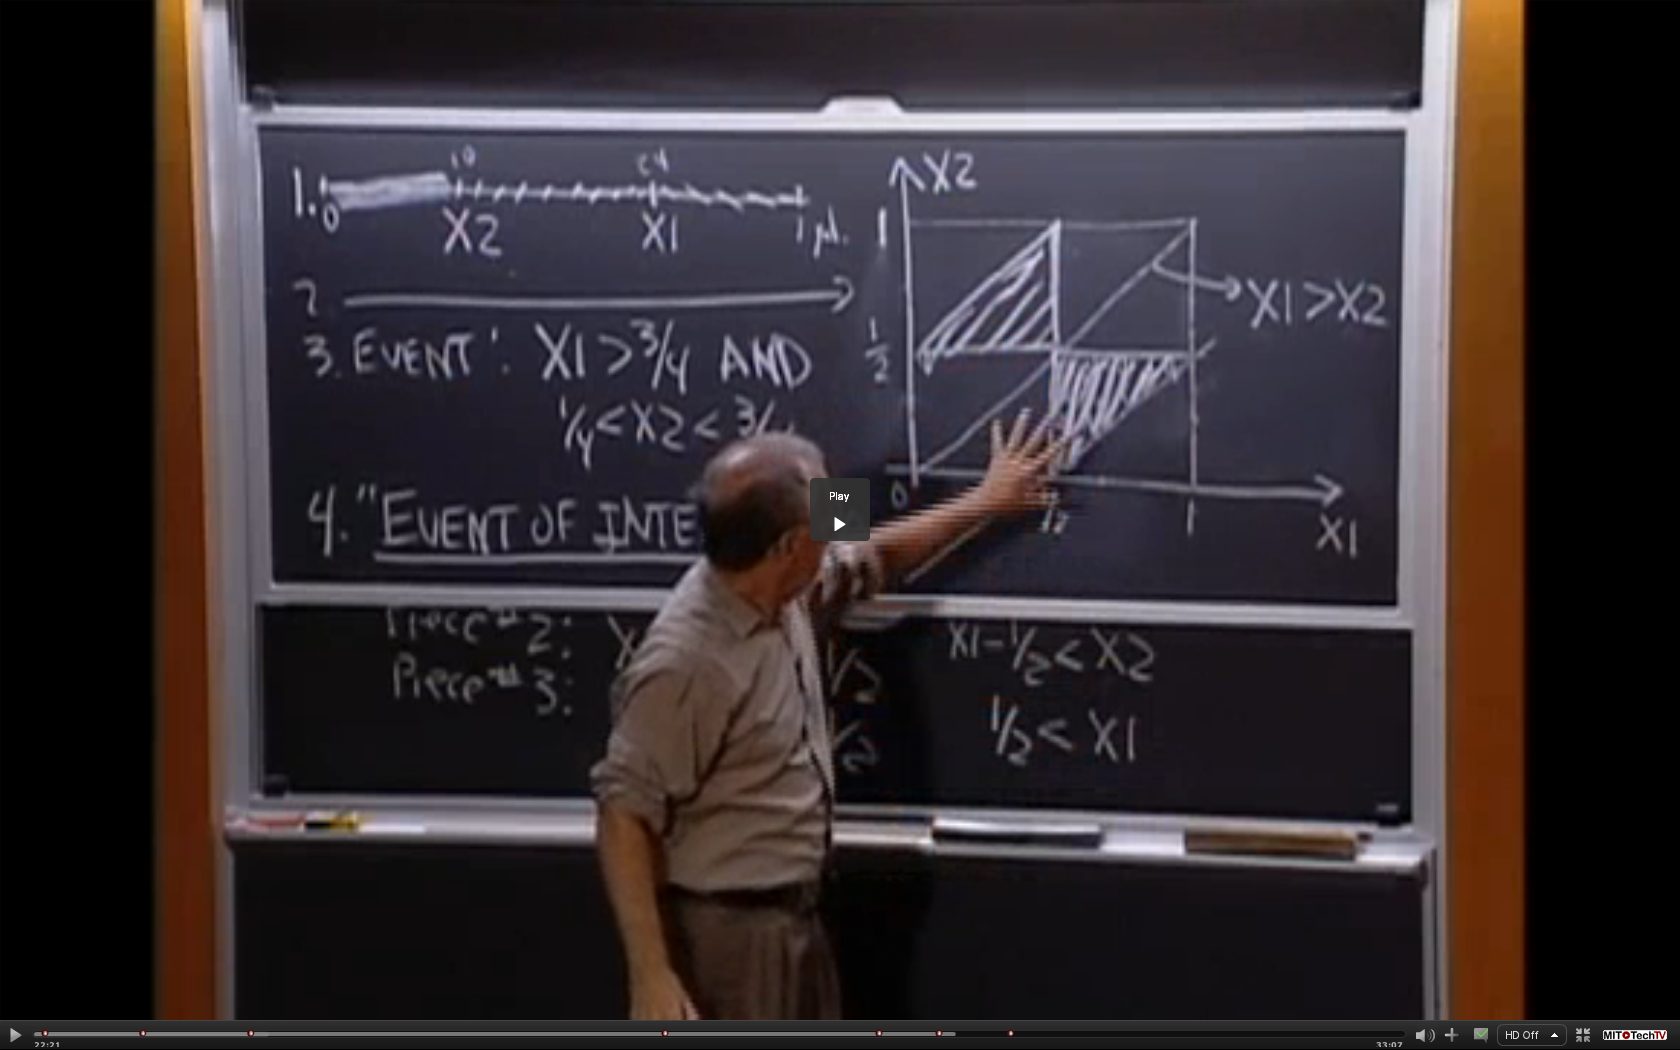 1.
0
X2
X1
1
2
3. EVENT: X1 > 3/4 AND
1/4 < X2 < 3/4
4. "EVENT OF INTE
X2
1
1/2
0
1/2
1
X1
X1 > X2
Piece # 2: X
1/2
X1 - 1/2 < X2
Piece # 3:
1/2
1/2 < X1
Play
22:21
33:07
HD Off
MIT TechTV